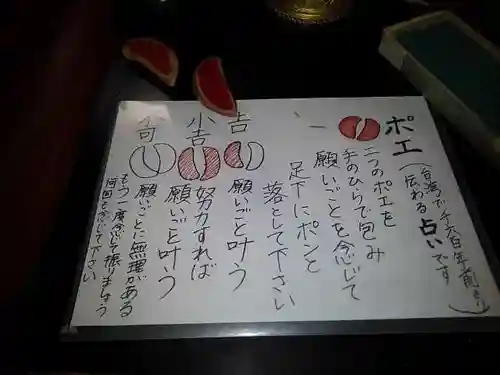 ポエ
(台湾で千六百年前より
伝わる占いです)
二つのポエを
手のひらで包み
願いごとを念じて
足下にポンと
落として下さい
吉
願いごと叶う
小吉
努力すれば
願いごと叶う
願いごとに無理がある
もう一度念じて振りましょう
何回も念じて下さい